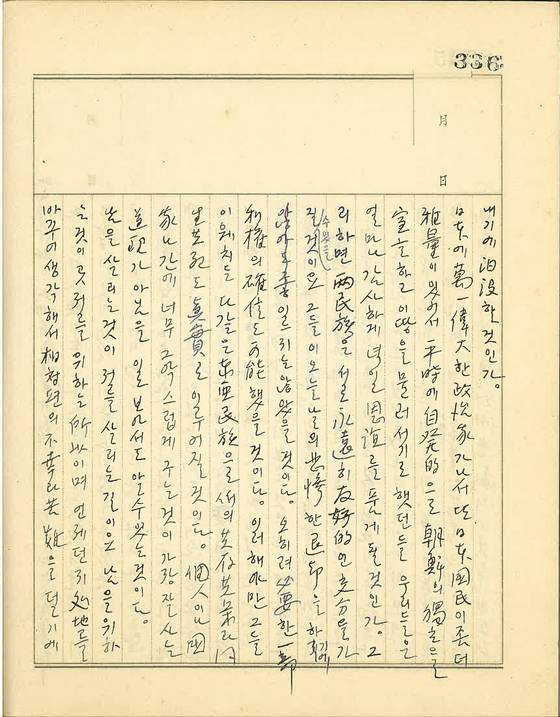 336
月
日
내기에 汨沒한것인가。
日本에 萬一 偉大한 政治家가 나서 또 日本國民이 좀더
雅量이 있어서 平時에 自発的으로 朝鮮의 獨立을
宣言하고 이땅을 물러서기로 했던들 우리들은
얼마나 감사하게 녁이 恩誼를 품게 될것인가。 그
리하면 両民族은 서로 永遠히 友好的인 交分을 가
질수있을것이오 그들이 오늘날의 悲惨한 退却을 하지
않아도 좋 일르지는 않았을것이다。 오히려 必要한 一部
利権의 確保도 可能했을것이다。 이러해야만 그들
이 외치는 다같은 東亜民族으로서의 共存共榮과
生 도 眞實로 이루어질것이다。 個人이나 國
家나 간에 너무 극악스럽게 구는것이 가장 잘사는
道理가 아님을 일로 보아서도 알수있는것이다。
남을 살리는것이 저를 살리는 길이오 남을 위하
는것이 곳 저를 위하는 所以이며 언제던지 處地를
바꾸어 생각해서 相對편의 不幸과 苦難을 덜기에